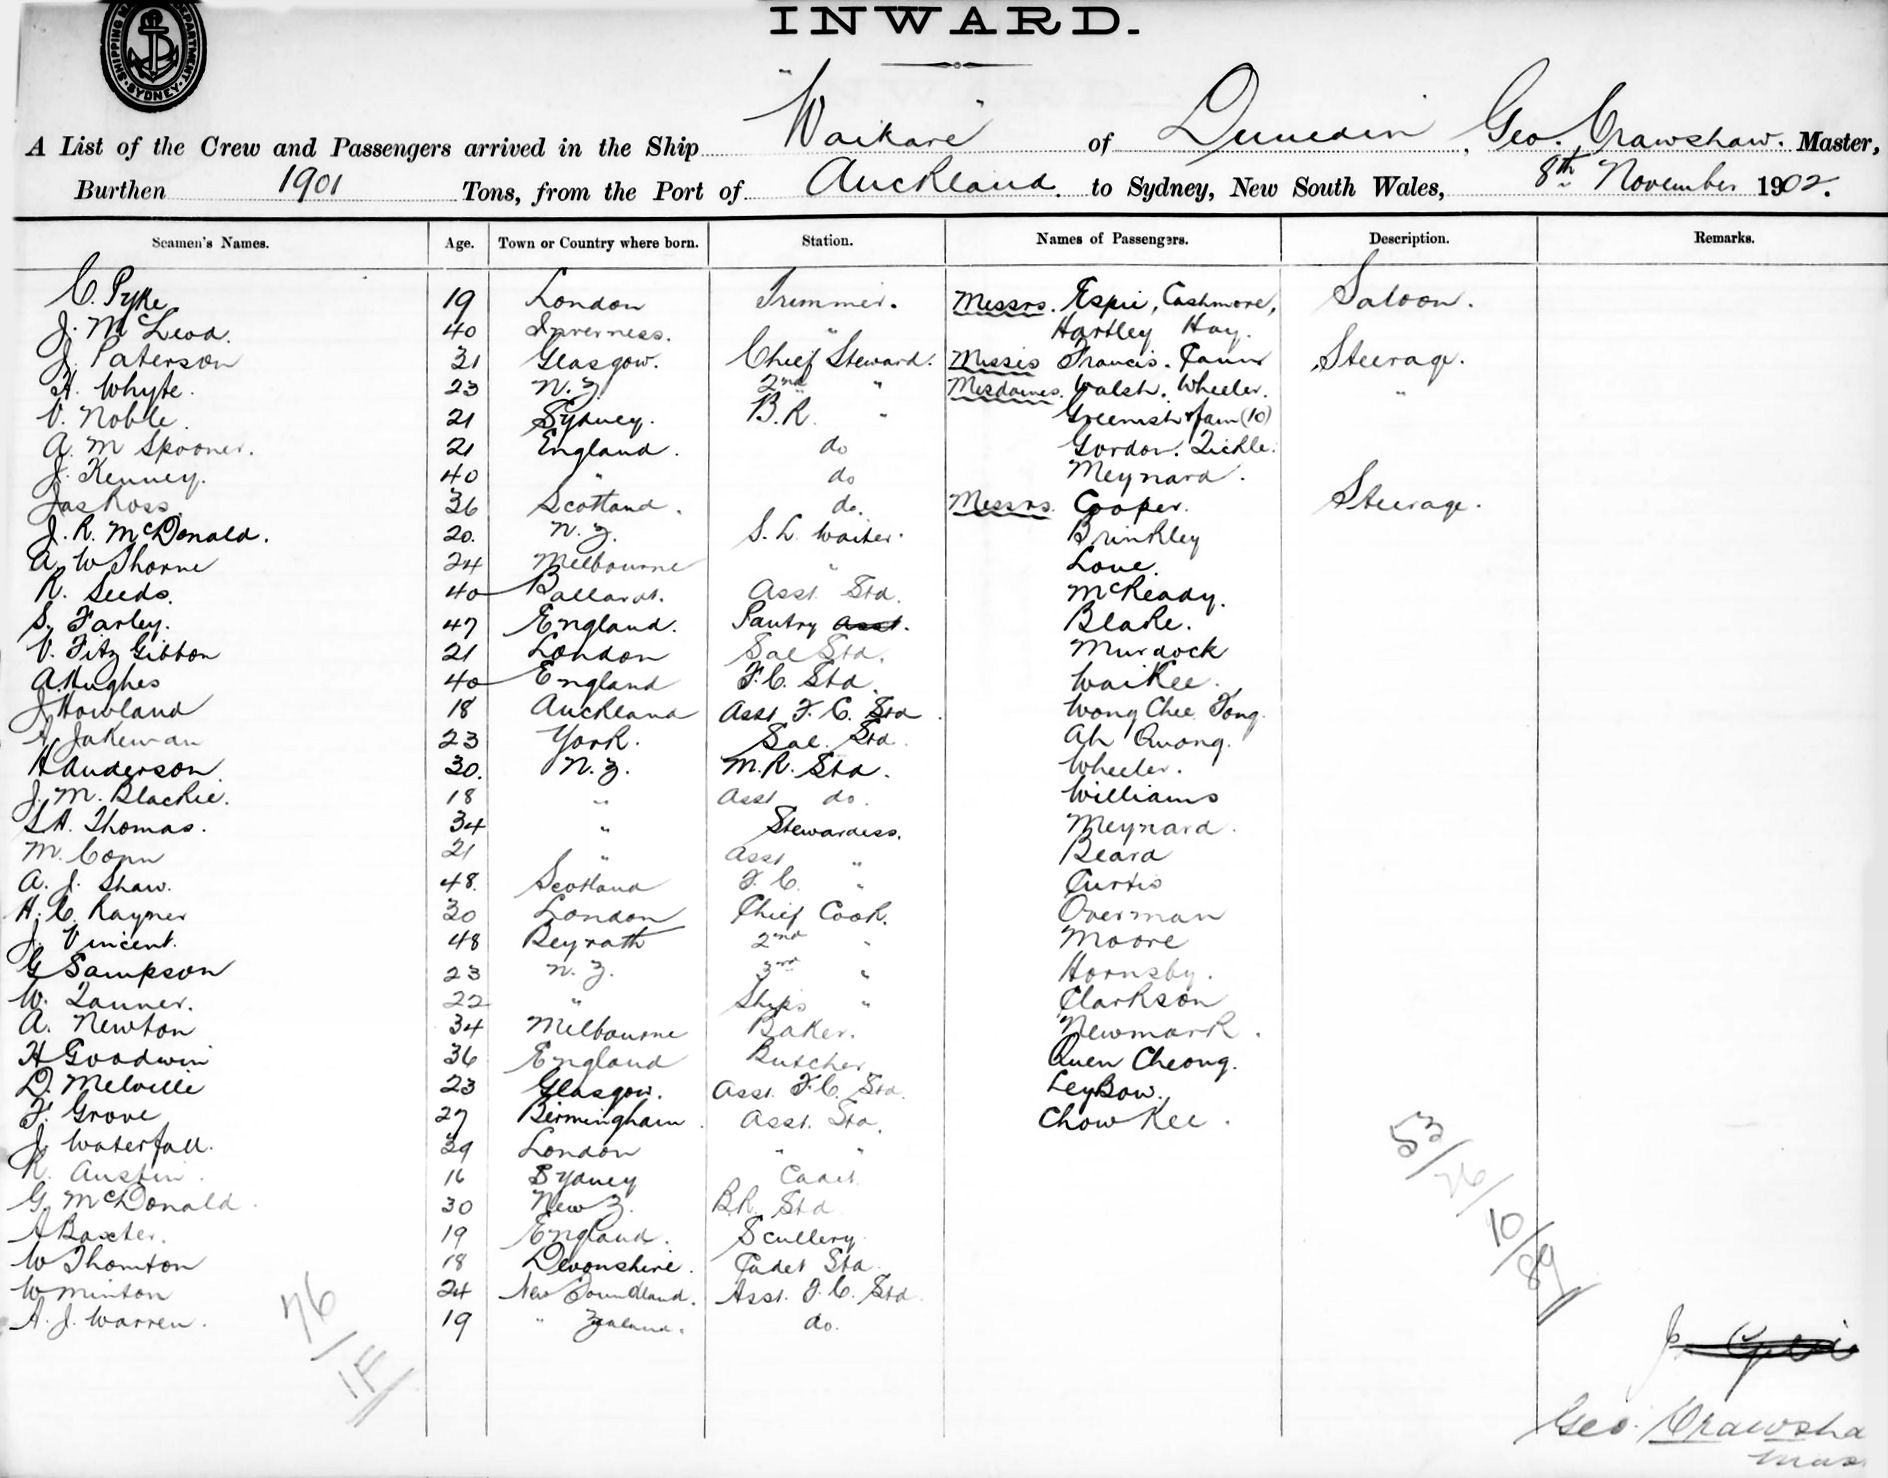 SHIPPING DEPARTMENT SYDNEY
INWARD.
A List of the Crew and Passengers arrived in the Ship "Waikare" of Dunedin, Geo. Crawshaw. Master,
Burthen 1901 Tons, from the Port of Auckland. to Sydney, New South Wales, 8th November 1902.
Seamen's Names. Age. Town or Country where born. Station. Names of Passengers. Description. Remarks.
C. Pyke 19 London Trimmer. Messrs. Espie, Cashmore, Saloon.
J. McLeod. 40 Inverness. " Hartley Hay.
J. Paterson 31 Glasgow. Chief Steward. Misses Francis. Steerage.
H. Whyte. 23 N.Z. 2nd " Mesdames. Walsh. Wheeler. "
V. Noble. 21 Sydney. B.R. " & fam (10)
A. M Spooner. 21 England. do Gordon. Tickle.
J. Kenney. 40 " do Meynard.
Jas Ross. 36 Scotland. do. Messrs. Cooper. Steerage.
J. R. McDonald. 20. N.Z. S. L. Waiter. Brinkley
A. W Thorne 24 Melbourne " Love.
R. Seeds. 40 Ballarat. Asst. Std. McReady.
S. Farley. 47 England. Pantry Asst. Blake.
V. Fitz Gibbon 21 London Sal Std. Murdock
A. Hughes 40 England F.C. Std. Wai Kee.
J Howland 18 Auckland Asst F. C. Std. Wong Chee Tong.
A Jakeman 23 York. Sal. Std. Ah Quong.
H Anderson. 30. N.Z. M.R. Std. Wheeler.
J. M. Blackie. 18 " Asst do. Williams
S A. Thomas. 34 " Stewardess. Meynard.
M. Conn 21 " Asst " Beard
A. J. Shaw. 48. Scotland F. C. " Curtis
H. C. Rayner 30 London Chief Cook. Overman
J. Vincent. 48 Beyrath 2nd " Moore
G Sampson 23 N.Z. 3rd " Hornsby.
W. Tanner. 22 " Ships " Clarkson
A. Newton 34 Melbourne Baker. Newmark.
H Goodwin 36 England Butcher Quen Cheong.
D. Melville 23 Glasgow. Asst F.C. Std. Ley Bow.
F. Grove 27 Birmingham. Asst. Std. Chow Kee.
J. Waterfall. 39 London " "
R. Austin. 16 Sydney Cadet.
G. McDonald. 30 New Z. B.R. Std
A Baxter. 19 England. Scullery
W Thornton 18 Devonshire. Cadet Std.
W Minton 24 New Foundland. Asst. F. C. Std.
A. J. Warren. 19 " Zealand. do.
76/18
53/26/10/89
Geo. Crawsha
Mas